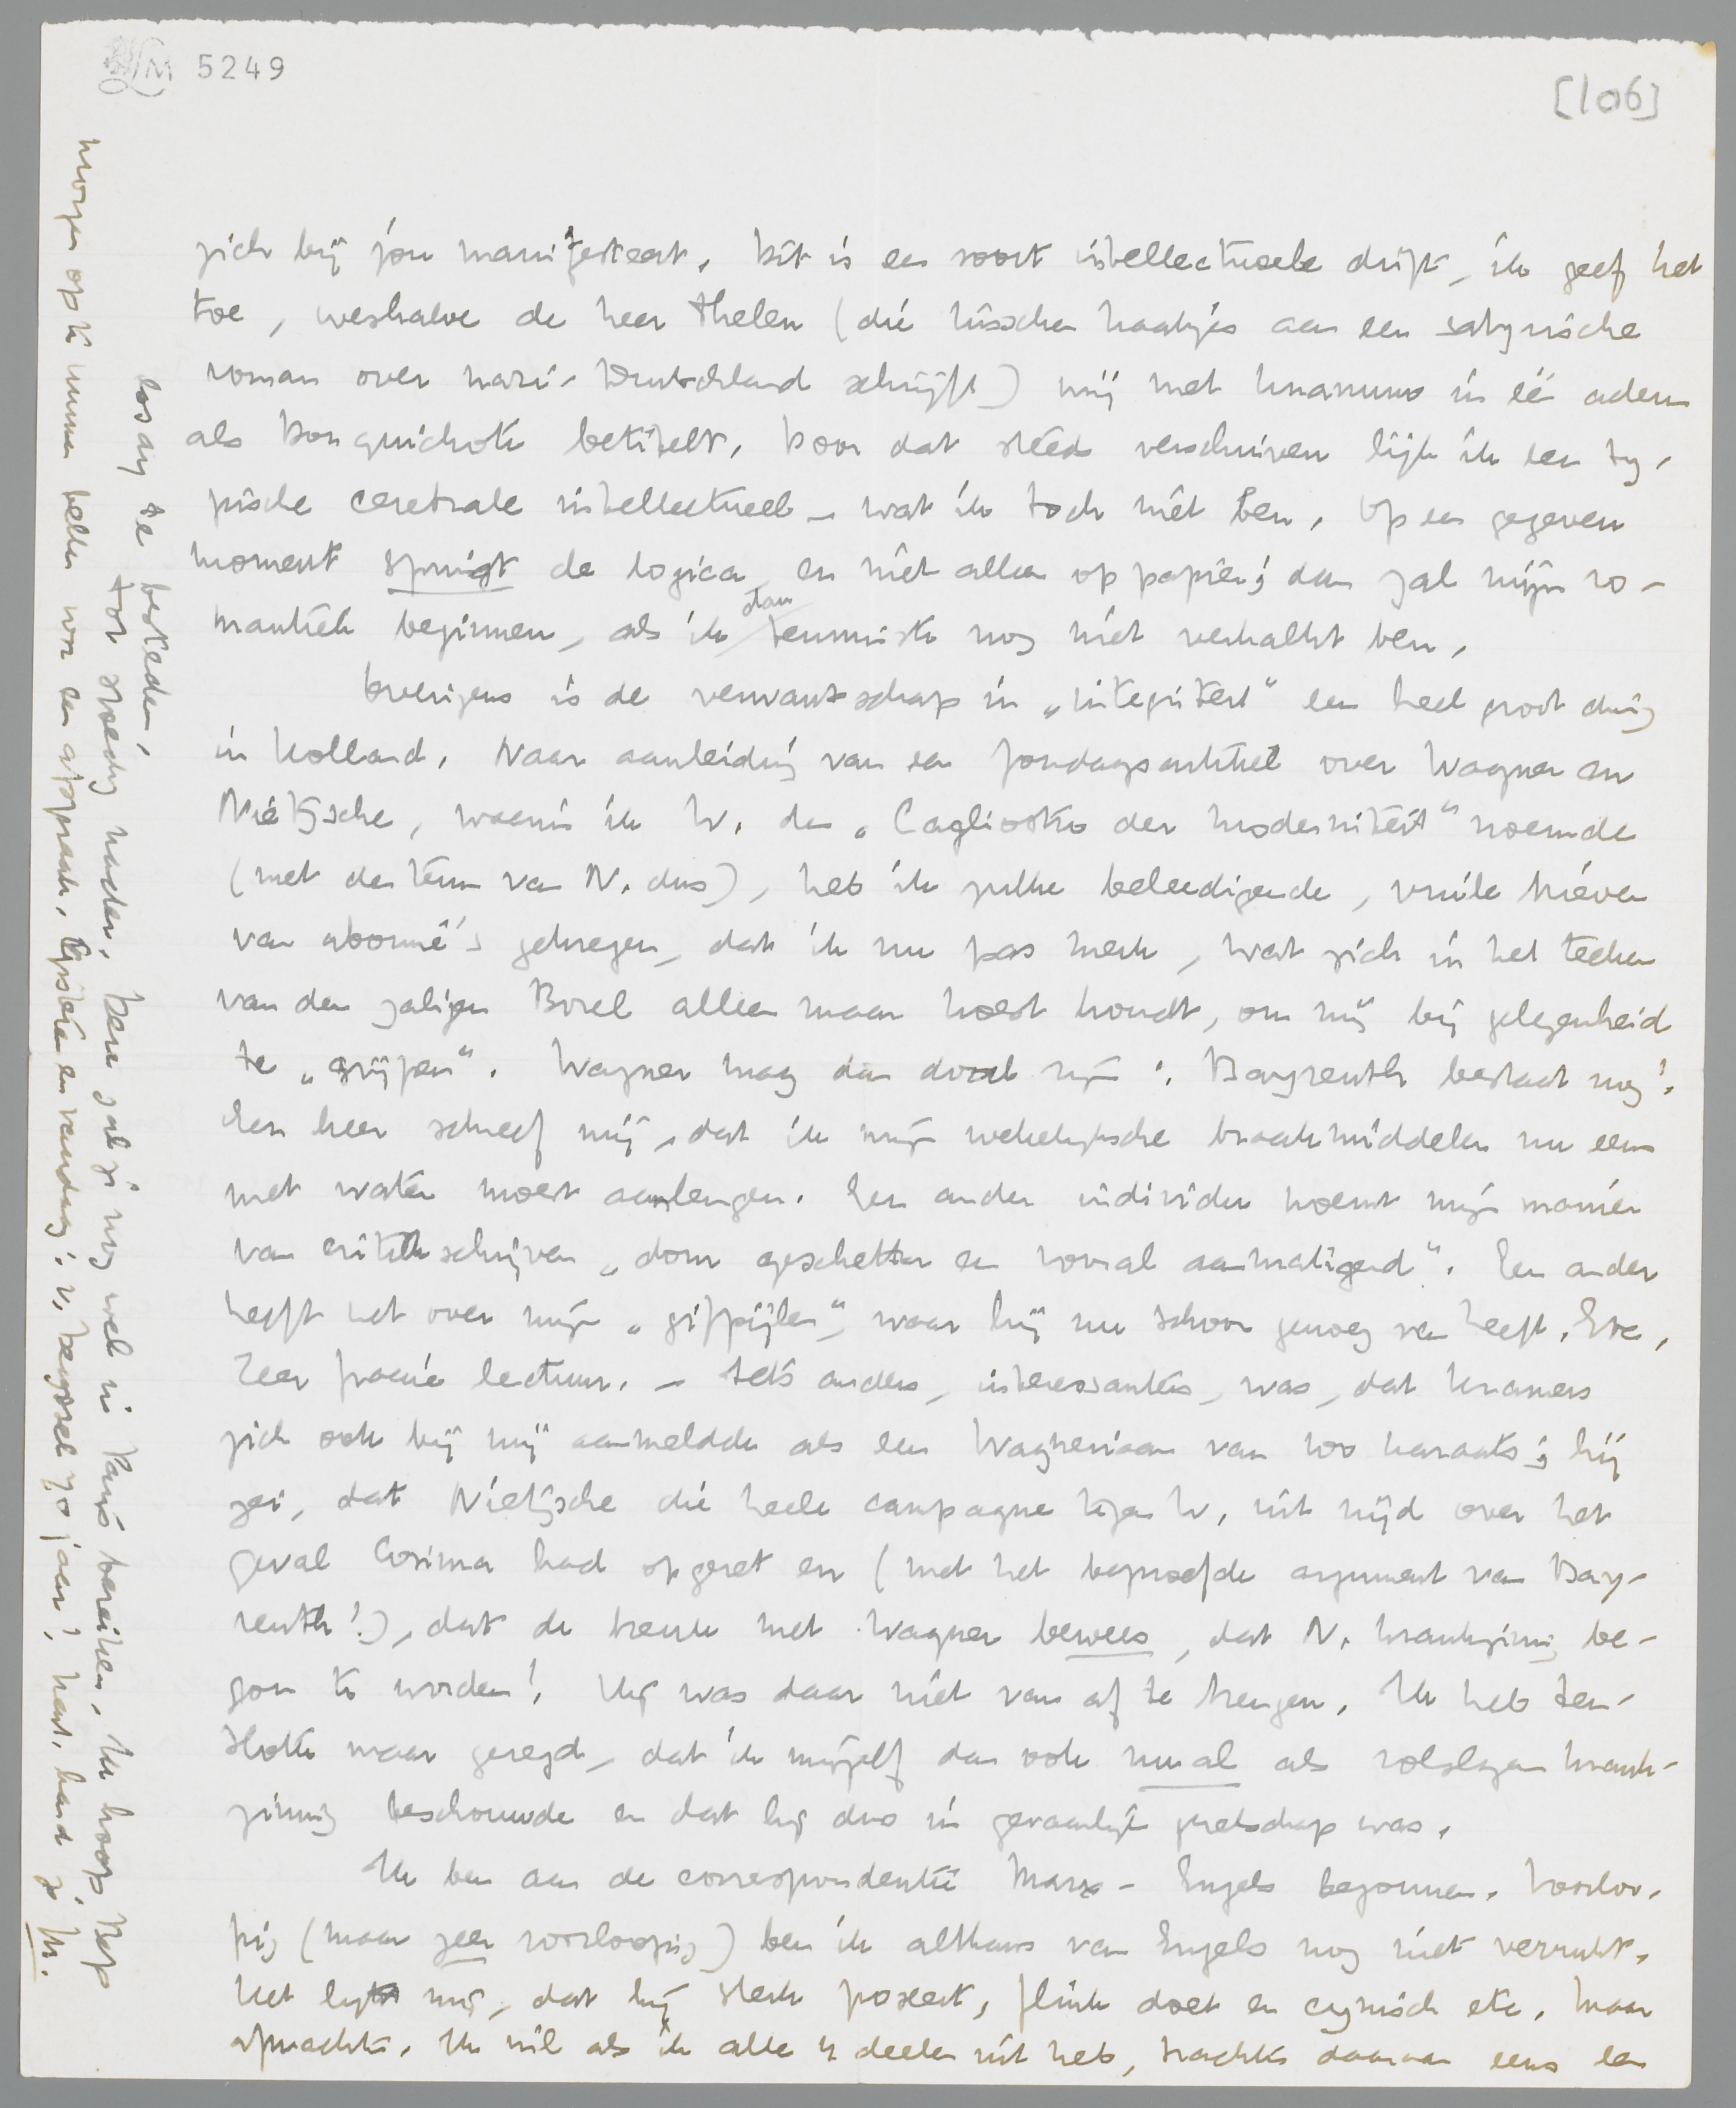 LM 5249
[106]
zich bij jou manifesteert. Dit is een soort intellectueele drift, ik geef het
toe, weshalve de heer Thelen (die tusschen haakjes aan een satyrische
roman over nazi-Deutschland schrijft) mij met Unamuno in éé adem
als Don Quichote betitelt. Door dat steeds verschuiven lijk ik een ty-
pische cerebrale intellectueel – wat ik toch niet ben. Op een gegeven
moment springt de logica, en niet alleen op papier; dan zal mijn ro-
mantiek beginnen, als ik dan tenminste nog niet verkalkt ben.
Overigens is de verwantschap in „integriteit" een heel groot ding
in Holland. Naar aanleiding van een Zondagsartikel over Wagner en
Nietzsche, waarin ik W. den „Cagliostro der moderniteit" noemde
(met den term van N. dus), heb ik zulke beleedigende, vuile brieven
van abonné's gekregen, dat ik nu pas merk, wat zich in het teeken
van den zaligen Borel alleen maar koest houdt, om mij bij gelegenheid
te „grijpen". Wagner mag dan dood zijn: Bayreuth bestaat nog!
Een heer schreef mij, dat ik mijn wekelijksche braakmiddelen nu eens
met water moest aanlengen. Een ander individu noemt mijn manier
van critiekschrijven „dom geschetter en vooral aanmatigend". Een ander
heeft het over mijn „gifpijlen", waar hij nu schoon genoeg van heeft. Etc.
Zeer fraaie lectuur. – Iets anders, interessanters, was, dat Kramers
zich ook bij mij aanmeldde als een Wagneriaan van 100 karaats; hij
zei, dat Nietzsche die heele campagne tegen W. uit nijd over het
geval Cosima had opgezet en (met het beproefde argument van Bay-
reuth!), dat de breuk met Wagner bewees, dat N. krankzinnig be-
gon te worden! Hij was daar niet van af te brengen. Ik heb ten-
slotte maar gezegd, dat ik mijzelf dan ook nu al als volslagen krank-
zinnig beschouwde en dat hij dus in gevaarlijk gezelschap was.
Ik ben aan de correspondentie Marx-Engels begonnen. Voorloo-
pig (maar zeer voorloopig) ben ik althans van Engels nog niet verrukt.
Het lijkt mij, dat hij sterk poseert, flink doet en cynisch etc. Maar
afwachten. Ik wil als ik alle 4 deelen uit heb, trachten daaraan eens een
las ay te besteden.
Tot spoedig nader. Deze zal je nog wel in Parijs bereiken. Ik hoop Bep
morgen op te kunnen bellen voor een afspraak. Gisteren en vandaag: v. hart. hand je M.